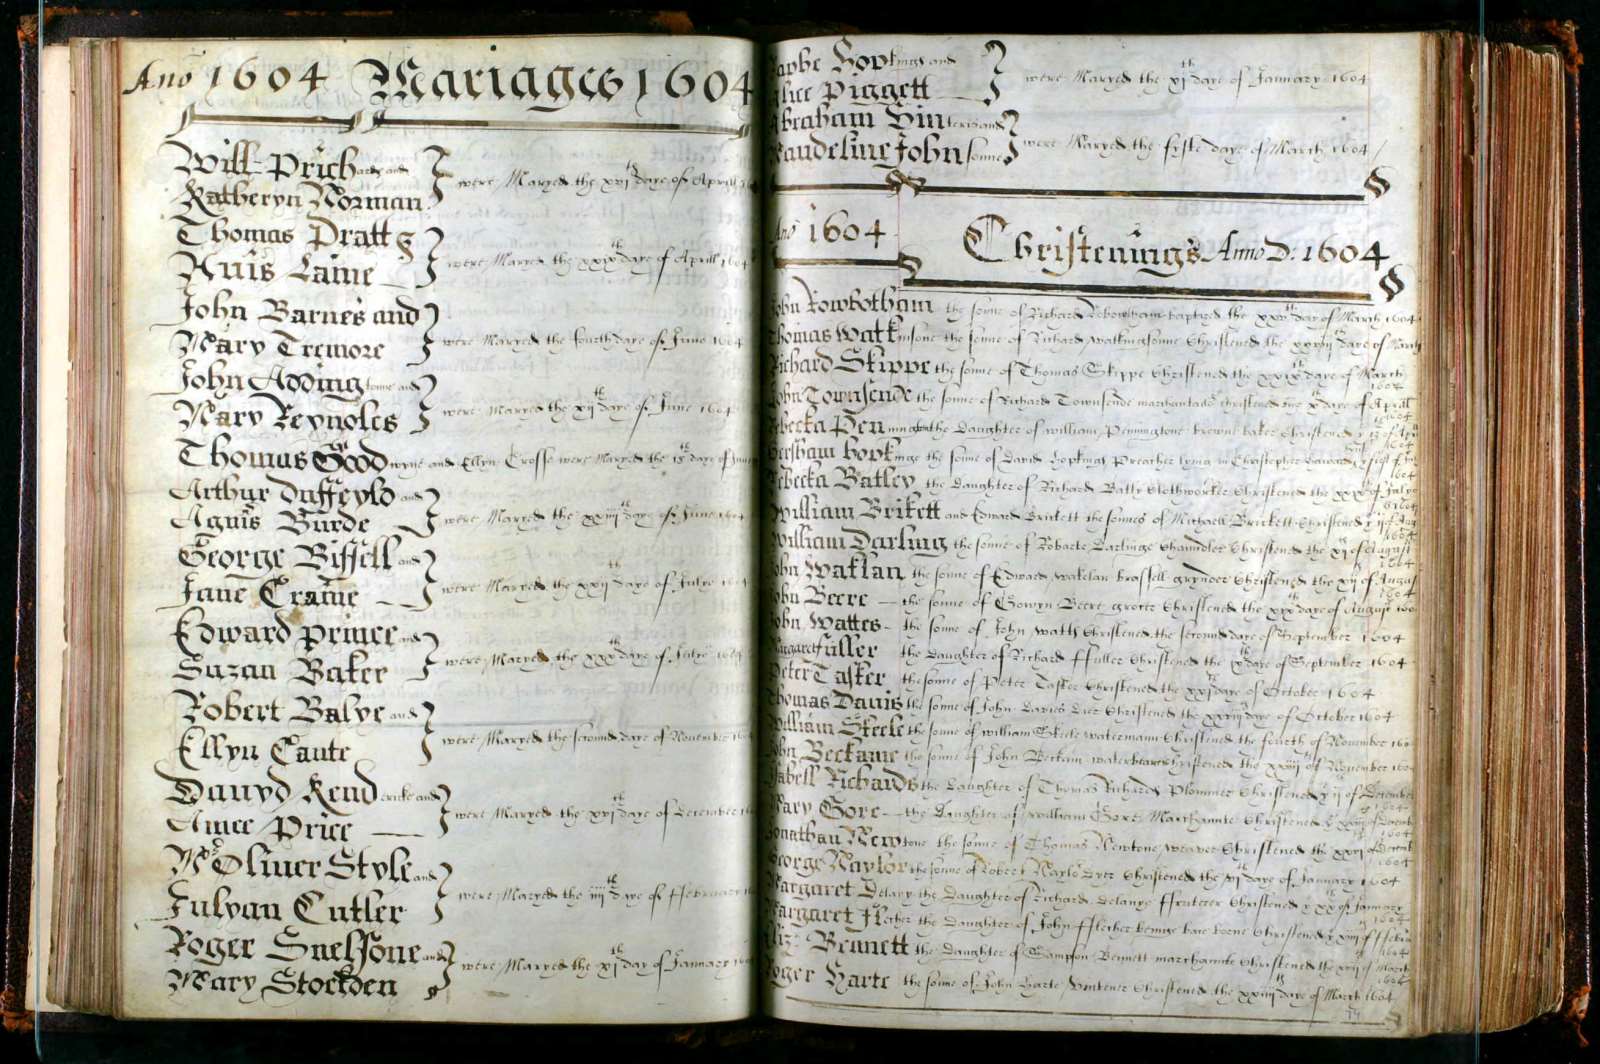 Ano 1604 Mariages 1604
Will Prichard and
Katheryn Norman
were Maryed the xvi th daye of Aprill
Thomas Pratt &
Laine
were Maryed the xxix th daye of Aprill 1604
John Barnes and
Mary Tremore
were Maryed the fourth daye of June 1604
John Addingtone and
Mary Reynoles
were Maryed the xii th daye of June 1604
Thomas Goodwyne and Ellyn Crosse were Maryed the 18 th daye of June
Arthur Duffeyld and
Agnis Burde
were Maryed the xxiii th daye of June 1604
George Bissell and
Jane Crame
were Maryed the xxii th daye of Julye 1604
Edward Prince and
Suzan Baker
were Maryed the xxx th daye of Julye 1604
Robert Balye and
Ellyn Cante
were Maryed the second daye of November 1604
Dauyd Kendricke and
Amee Price
were Maryed the xvi th daye of December
Mr Oliuer Style and
Julyan Cutler
were Maryed the iiii th daye of ffebruary
Roger Snelsone and
Mary Stockden
were Maryed the xi th day of January
Hopkings and
Alice Piggett
were Maryed the xi th daye of January 1604
Abraham and
Maudeline Johnsonne
were Maryed the fyste daye of March 1604
Ano 1604
Christenings Anno D: 1604
John Rowbotham the sonne of Richard baptized the xxv th day of March 1604
Thomas Watkinsone the sonne of Richard Watkingsonne Christened the xxviii th daye of March
Richard Skippe the sonne of Thomas Skippe Christened the xxix th daye of March 1604
John Townsende the sonne of Richard Townsende Christened the x th daye of Aprill 1604
Rebecka Pennington the Daughter of William Penningtone Christened
Gersham Hopkinge the sonne of David Hopkings Preacher lying in Christopher
Rebecka Batley the Daughter of Richard Batly Clothworker Christened the xxix of July 1604
William Brikett and Edward Brickett the sonnes of Michaell Brickett Christened 1604
William Darling the sonne of Robarte Darlinge Chaundler Christened the xi th of August 1604
John Waklan the sonne of Edward Wakelan Christened the xii of August 1604
John Beere the sonne of Gowyn Beere grocer Christened the xix th daye of August
John Wattes the sonne of John Watts Christened the second daye of September 1604
Margaret fuller the Daughter of Richard ffuller Christened the ix th daye of September 1604
Peter Tasker the sonne of Peter Tasker Christened the xxi th daye of October 1604
Thomas Dauis the sonne of John Dauies Christened the xxviii th daye of October 1604
William Steele the sonne of William Steele waterman Christened the fourth of November
John Beckame the sonne of John Beckam waterbearer Christened the of November
Isabell Richards the Daughter of Thomas Richards Plommer Christened ii of December 1604
Mary Gore the Daughter of William Gore Marchannte Christened of December 1604
Jonathan Newtone the sonne of Thomas Newtone weaver Christened the xxvi of December 1604
George Naylor the sonne of Robert Christened the vi th daye of January 1604
Margaret Delany the Daughter of Richard Delanye ffruterer Christened xx of January 1604
Margaret the Daughter of John ffletcher Christened 1604
Eliz: Bennett the Daughter of Sampson Bennett marchannte Christened the of March 1604
Roger Harte the sonne of John Harte Vintener Christened the xxiiii th daye of March 1604